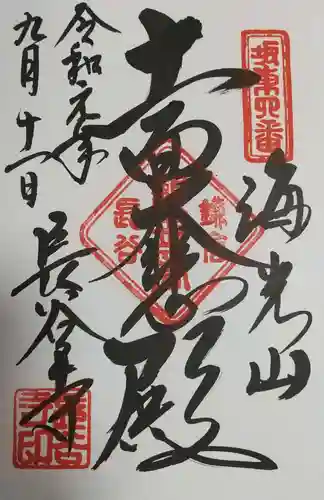 坂東四番
海光山
十一面大悲殿
鎌倉
長谷
令和元年
九月十一日
長谷寺